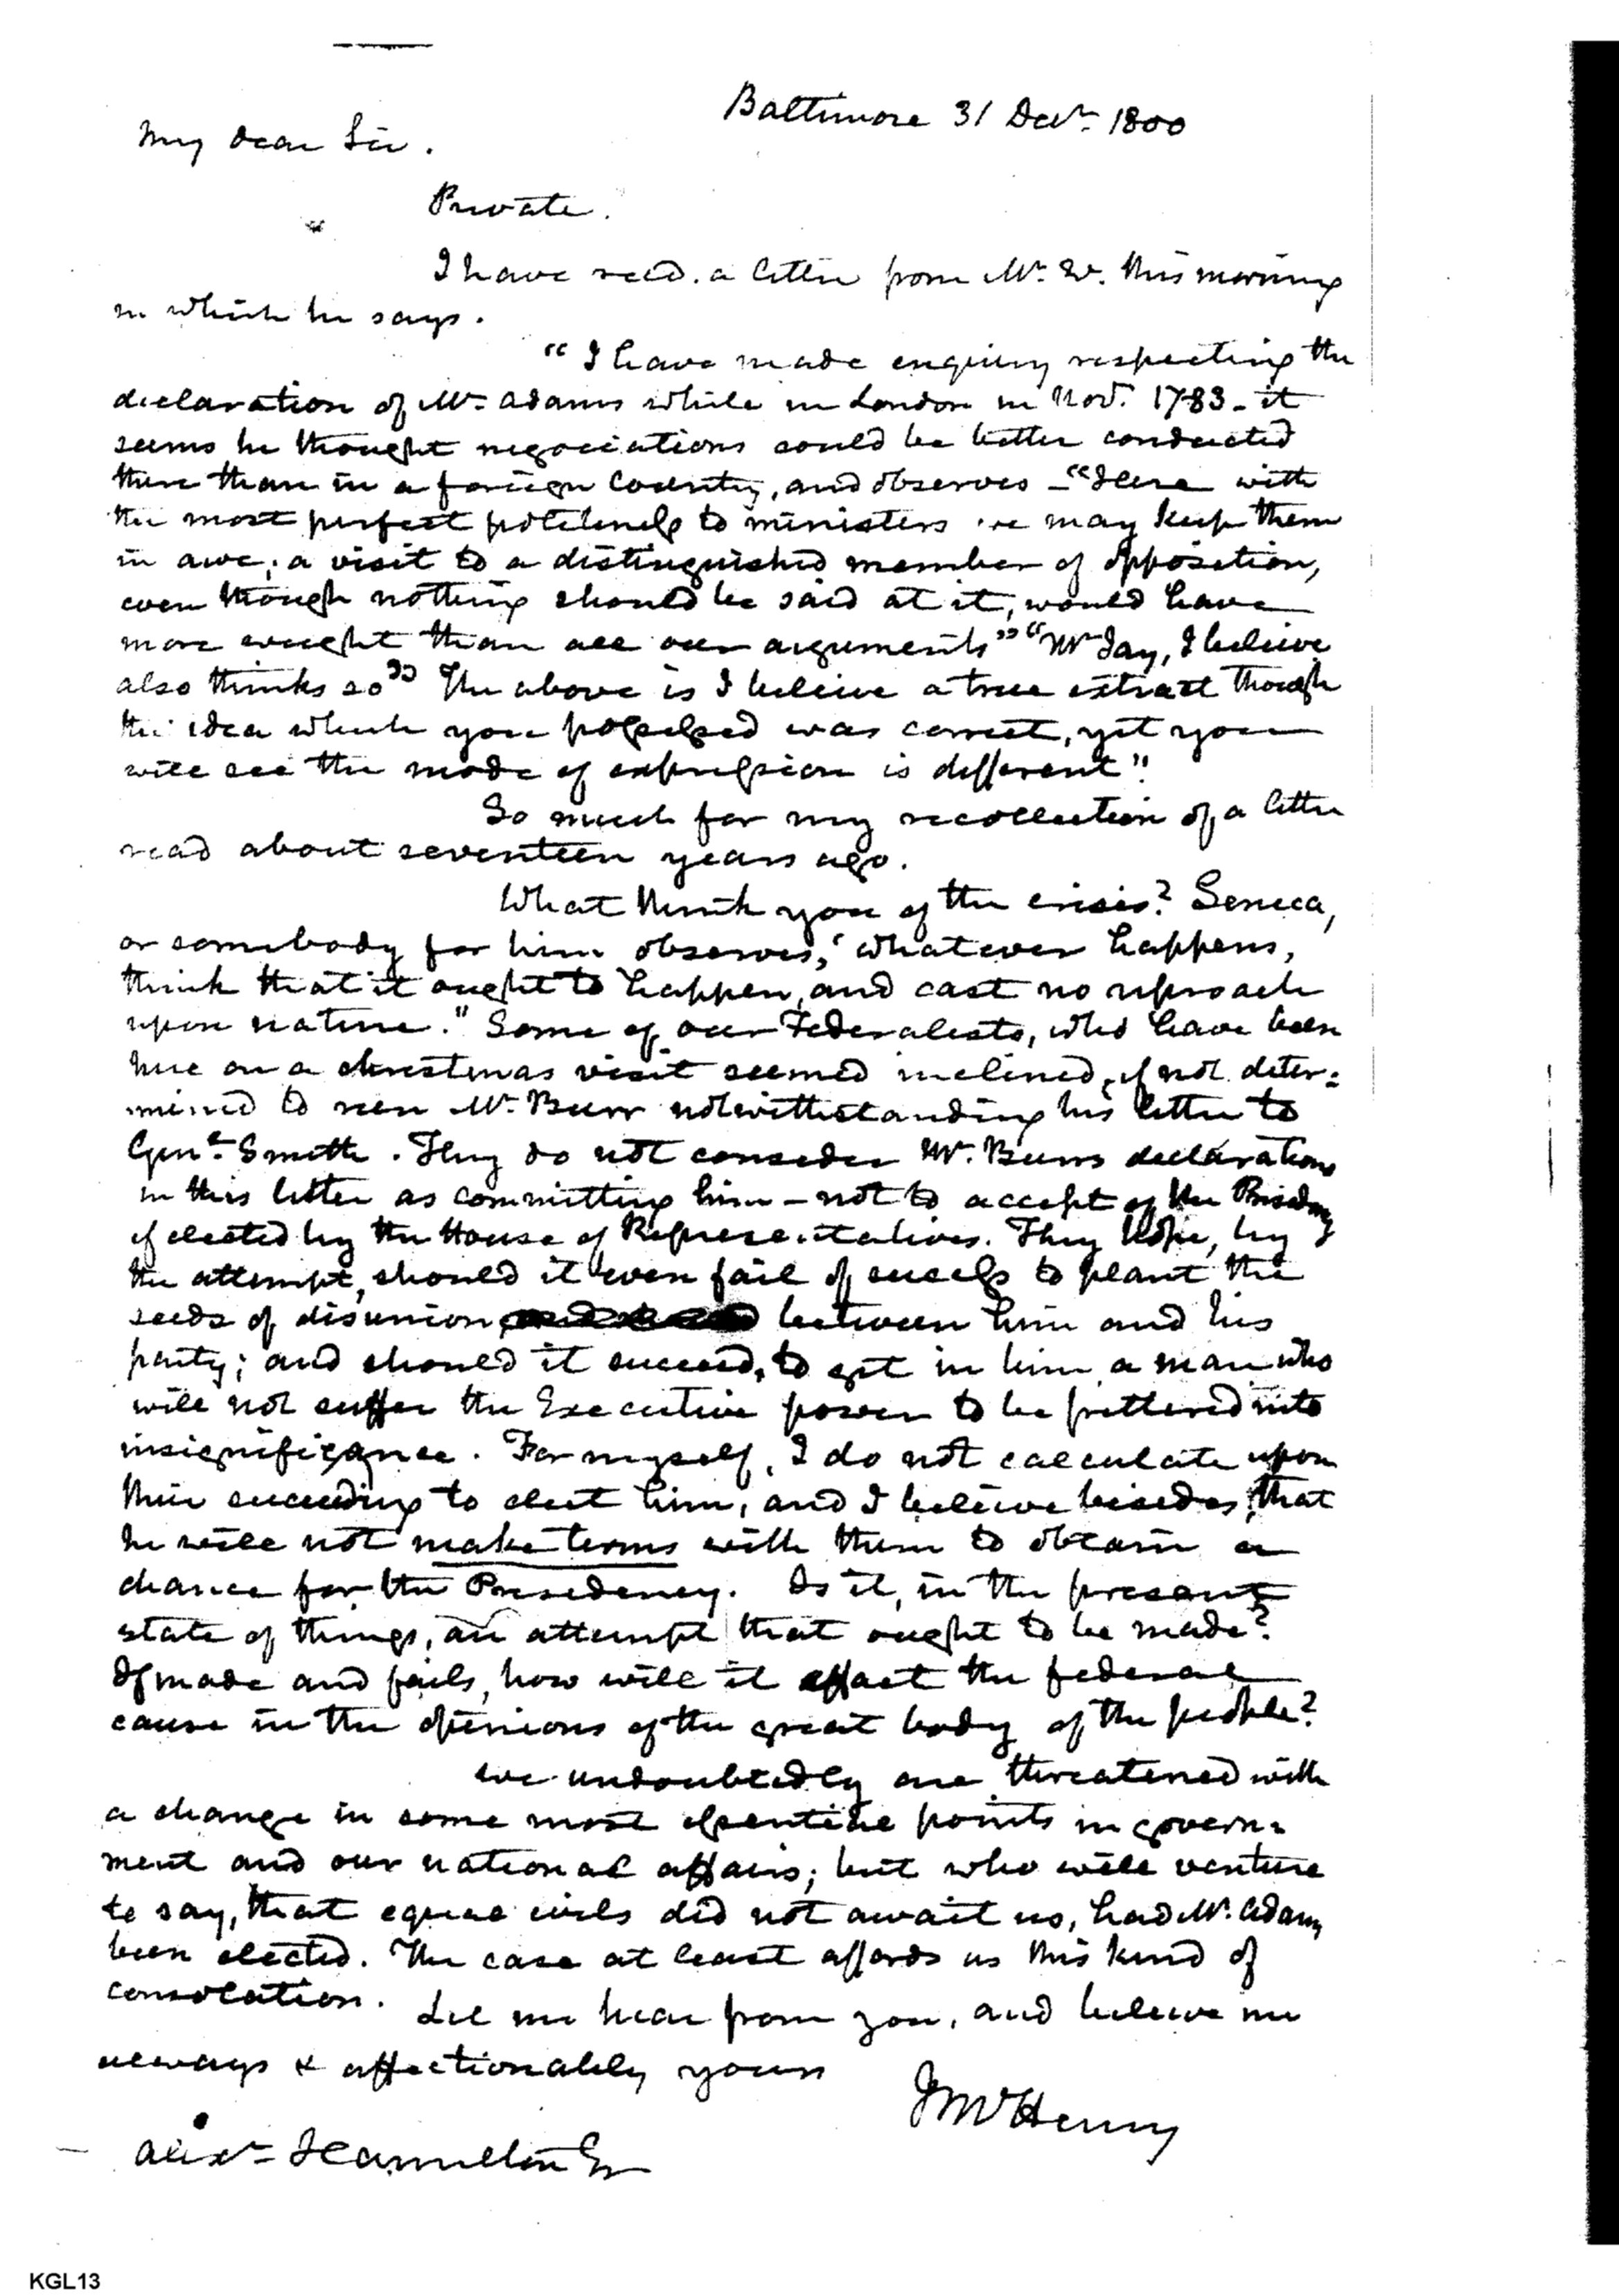 Baltimore 31 Decr. 1800
My dear Sir.
Private.
I have recd. a letter from Mr. W. this morning
in which he says.
"I have made enquiry respecting the
declaration of Mr. Adams while in London in Novr. 1783 - it
seems he thought negociations could be better conducted
there than in a foreign Country, and observes - "Here with
the most perfect politeness to ministers we may keep them
in awe; a visit to a distinguished member of opposition,
even though nothing should be said at it, would have
more weight than all our arguments" "Mr Jay, I believe
also thinks so" The above is I believe a true extract though
the idea which you possessed was correct, yet you
will see the mode of expression is different".
So much for my recollection of a letter
read about seventeen years ago.
What think you of the crisis? Seneca,
or somebody for him observes, "whatever happens,
think that it ought to happen, and cast no reproach
upon nature." Some of our Federalists, who have been
here on a christmas visit seemed inclined, if not deter=
mined to run Mr. Burr notwithstanding his letter to
Genl. Smith. They do not consider Mr. Burrs declarations
in this letter as committing him - not to accept of the Presidency
if elected by the House of Representatives. They hope, by
the attempt, should it even fail of success to plant the
seeds of disunion between him and his
party; and should it succeed, to get in him a man who
will not suffer the Executive power to be frittered into
insignificance. For myself, I do not calculate upon
their succeeding to elect him, and I believe besides, that
he will not make terms with them to obtain a
chance for the Presidency. Is it, in the present
state of things, an attempt that ought to be made?
If made and fails, how will it affect the federal
cause in the opinions of the great body of the people?
We undoubtedly are threatened with
a change in some most essential points in govern=
ment and our national affairs; but who will venture
to say, that equal evils did not await us, had Mr. Adams
been elected. The case at least affords us this kind of
consolation.
Let me hear from you, and believe me
always & affectionately yours
J McHenry
Alexr. Hamilton Esqr
KGL13